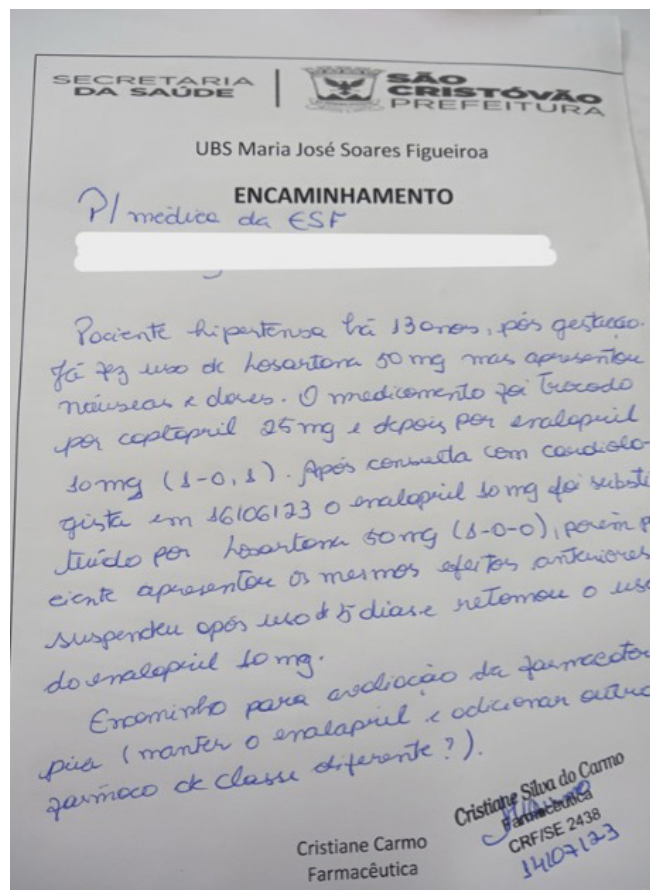 SECRETARIA
DA SAÚDE
SÃO
CRISTÓVÃO
PREFEITURA
UBS Maria José Soares Figueiroa
ENCAMINHAMENTO
P/ médica da ESF
Paciente hipertensa há 13 anos, pós gestação.
Já fez uso de Losartana 50 mg mas apresentou
náuseas e dores. O medicamento foi trocado
por captopril 25 mg e depois por enalapril
10 mg (1-0,1). Após consulta com cardiolo-
gista em 16/06/23 o enalapril 10 mg foi substi
tuído por Losartana 50 mg (1-0-0), porém p
ciente apresentou os mesmos efeitos anteriores
suspendeu após uso d 5 dias e retomou o us
do enalapril 10 mg.
Encaminho para avaliação da farmacoter
pia (manter o enalapril e adicionar outro
fármaco de classe diferente?).
Cristiane Silva do Carmo
Farmacêutica
CRF/SE 2438
14/07/23
Cristiane Carmo
Farmacêutica